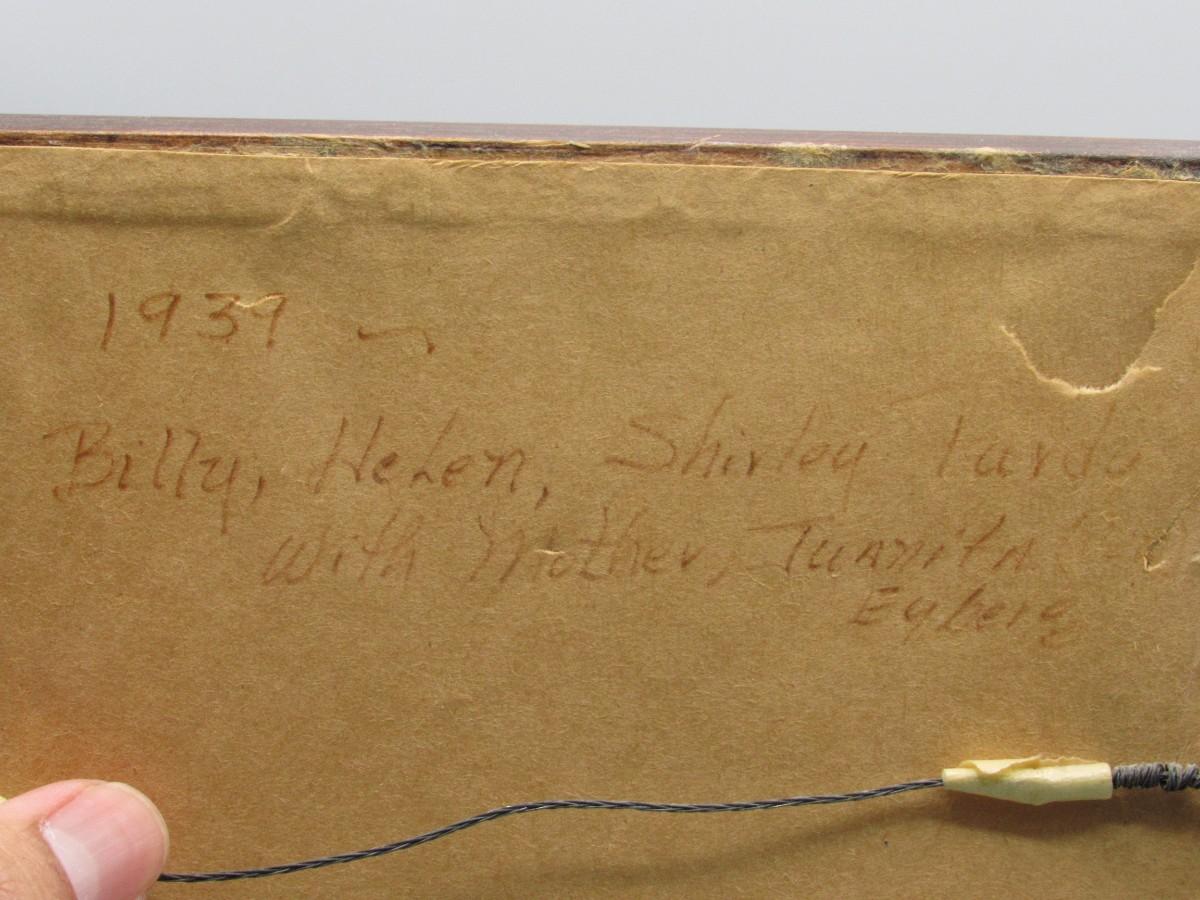 1939 ~
Billy, Helen, Shirley
with Mother, Juanita
Egberg